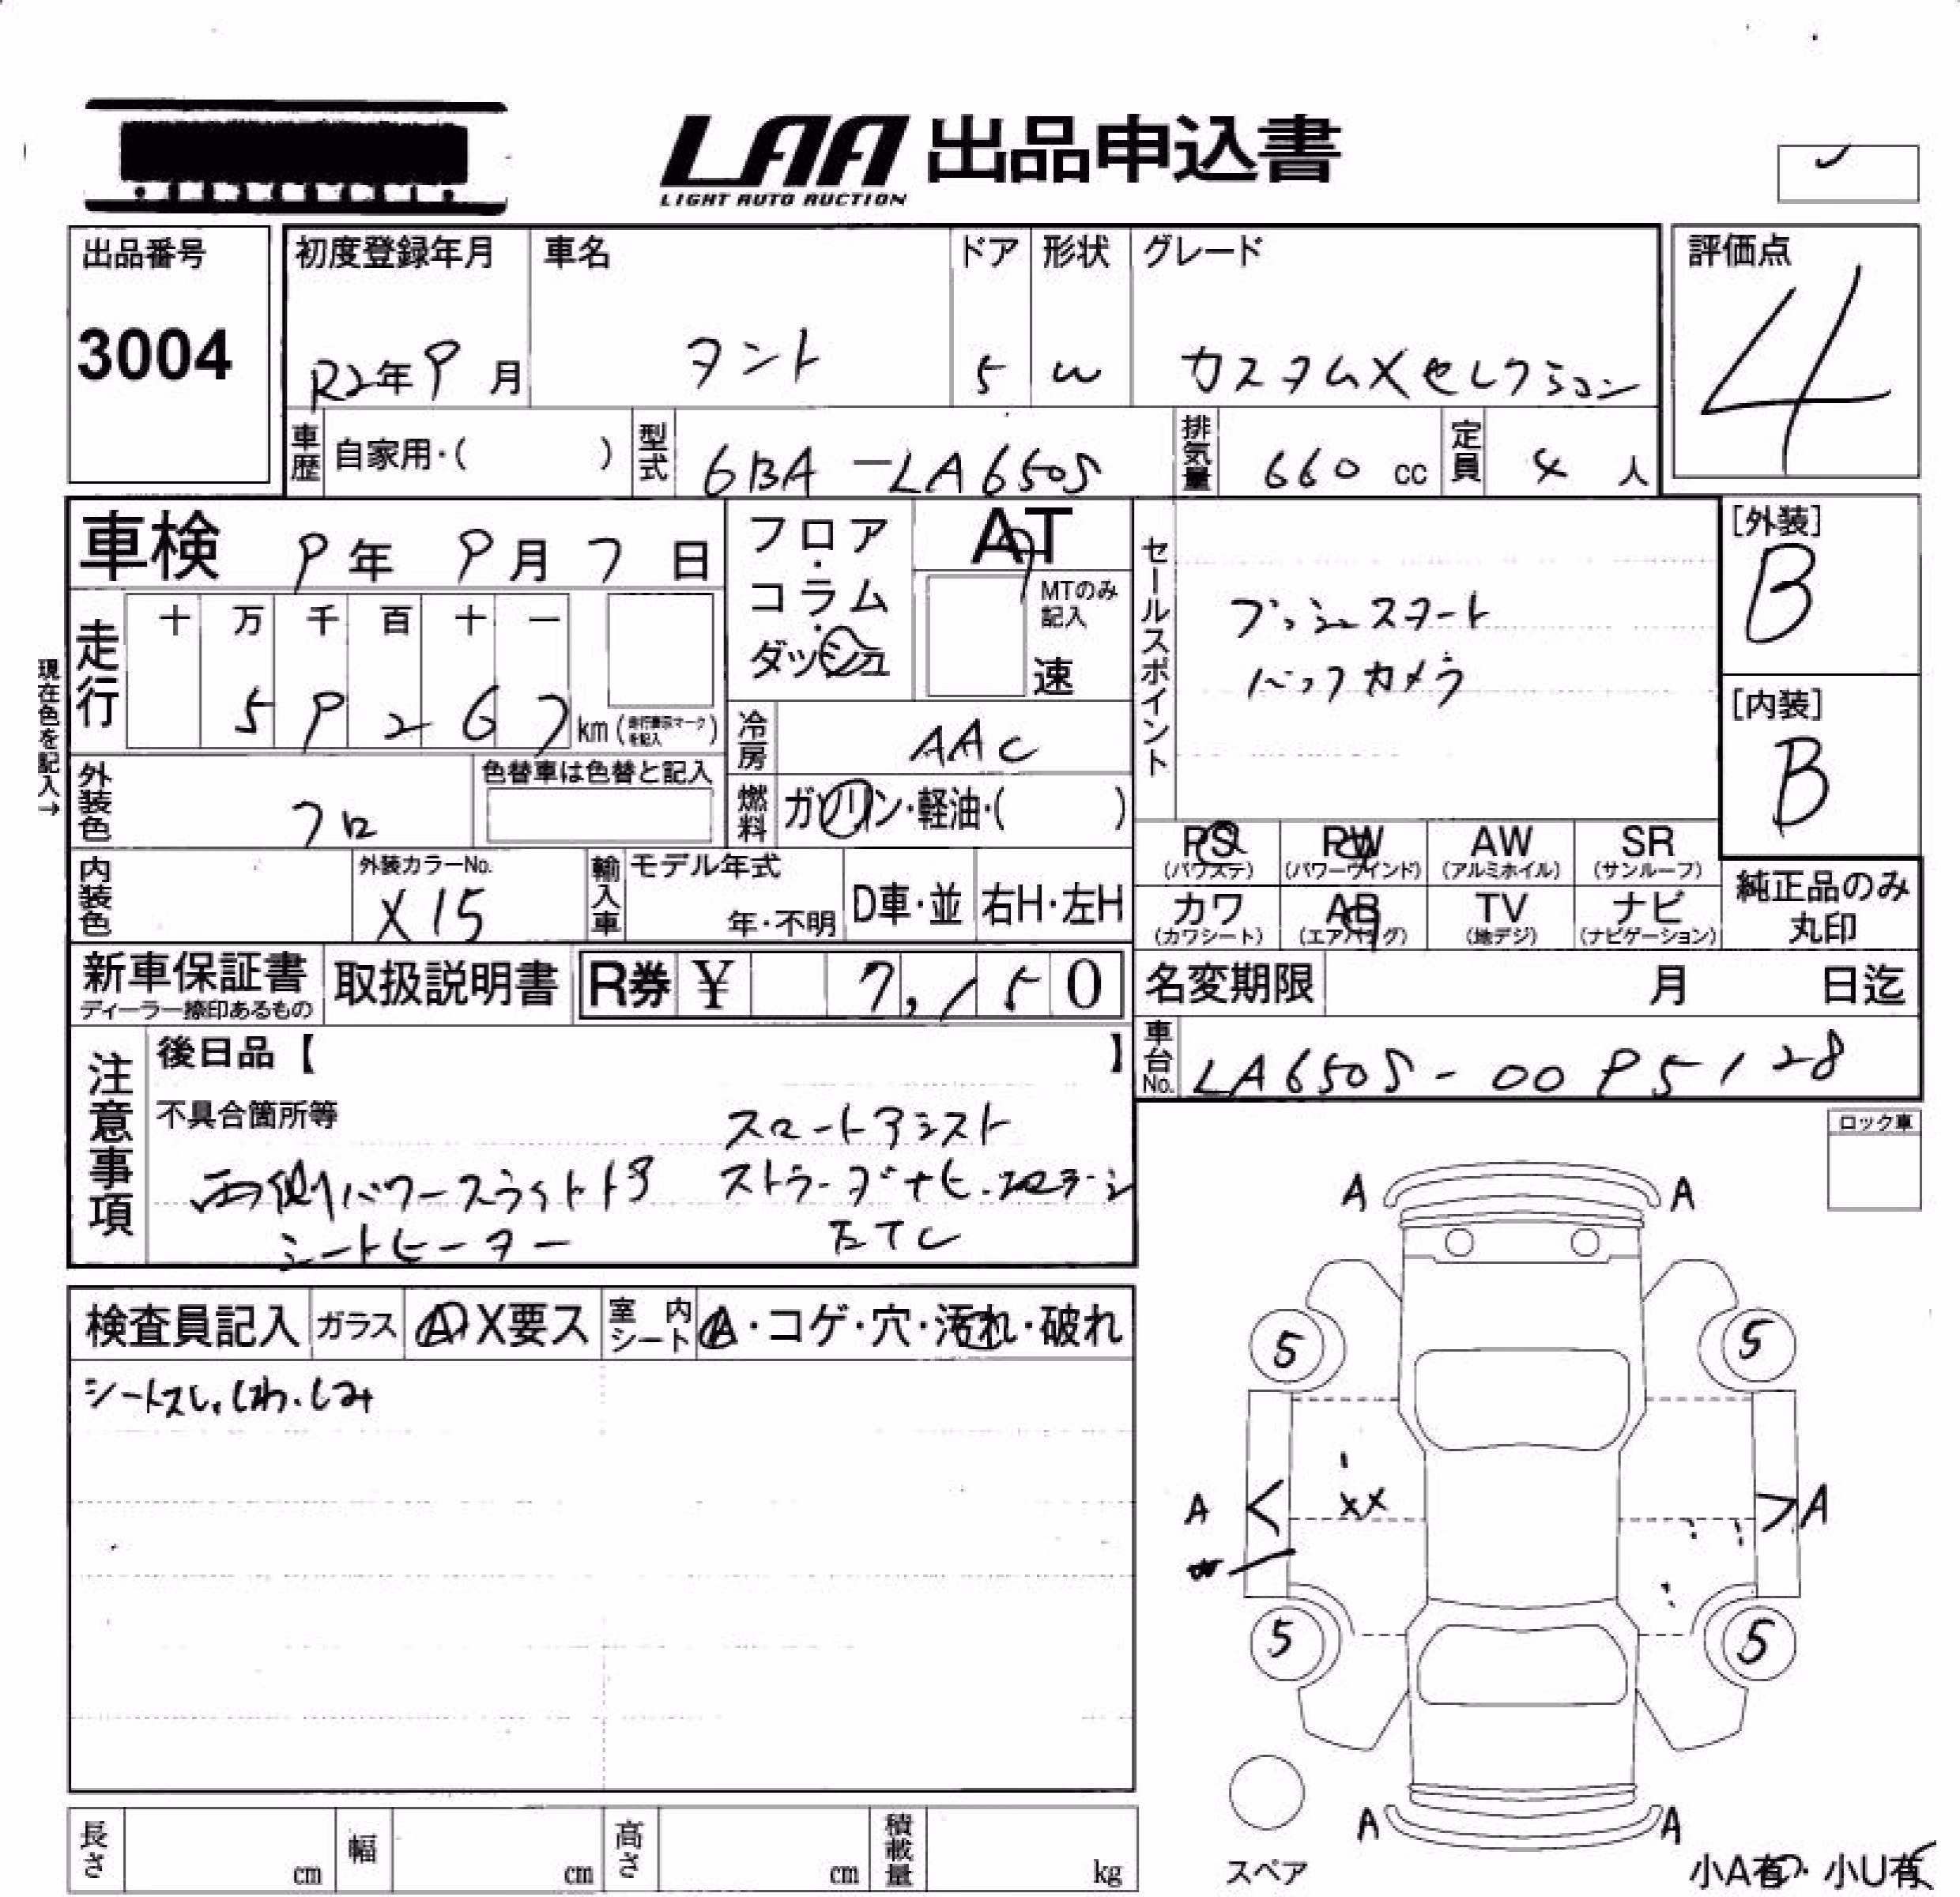 LAA 出品申込書
LIGHT AUTO AUCTION
出品番号
3004
初度登録年月 車名 ドア 形状 グレード
R2年9月 タント 5 W カスタムXセレクション
評価点
4
車歴 自家用・( ) 型式 6BA-LA650S 排気量 660 cc 定員 4 人
車検 9年 9月 7日
フロア・コラム・ダッシュ
AT
MTのみ記入
速
セールスポイント
プッシュスタート
バックカメラ
[外装]
B
[内装]
B
現在色を記入→
走行 十 万 千 百 十 一
5 9 2 6 7 km (走行表示マークを記入)
冷房 AAC
外装色 クロ
色替車は色替と記入
燃料 ガソリン・軽油・( )
PS (パワステ) PW (パワーウインド) AW (アルミホイル) SR (サンルーフ)
カワ (カワシート) AB (エアバッグ) TV (地デジ) ナビ (ナビゲーション)
純正品のみ丸印
内装色
外装カラーNo.
X15
輸入車 モデル年式
年・不明 D車・並 右H・左H
新車保証書
ディーラー捺印あるもの
取扱説明書 R券 ¥ 7,150
名変期限 月 日迄
車台No. LA650S-0095128
注意事項
後日品【 】
不具合箇所等
スマートアシスト
両側パワースライドドア
ストラーダナビ・フロアデーシ
シートヒーター
ETC
ロック車
検査員記入 ガラス A・X要ス 室内シート A・コゲ・穴・汚れ・破れ
シートスレ、しわ、しみ
A A
5 5
XX
A A
5 5
A A
スペア
小A有・小U有
長さ cm 幅 cm 高さ cm 積載量 kg